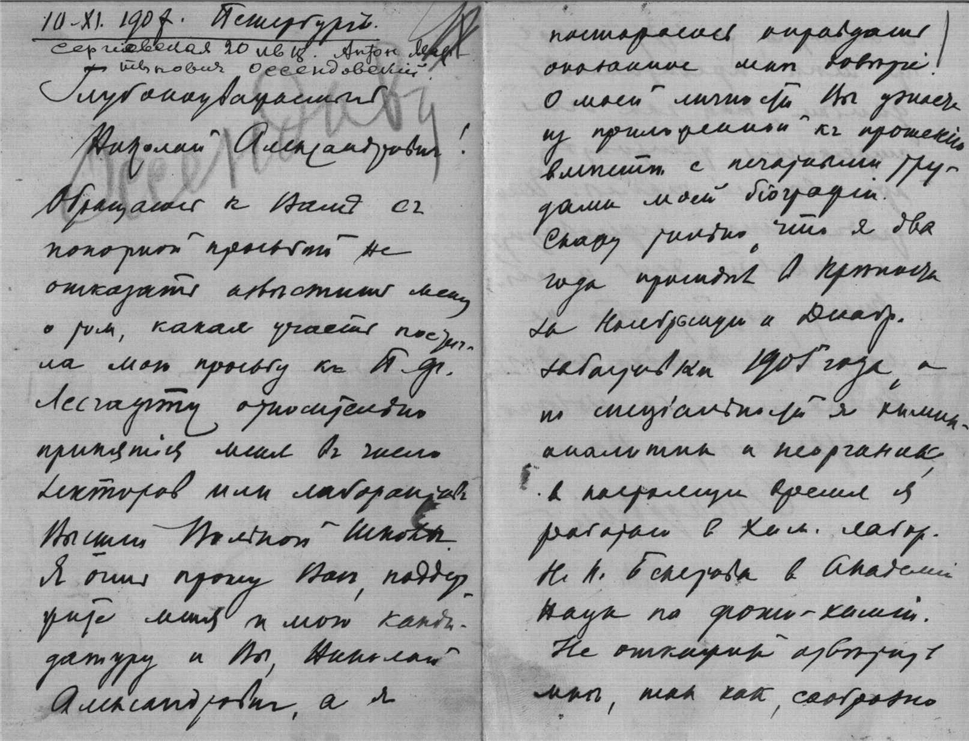 10-XI. 1907. Петербургъ.
Сергіевская 20 кв. Антон
Оссендовскій
Глубокоуважаемый
Николай Александрович!
Обращаюсь к Вамъ съ
покорной просьбой не
отказать извѣстить меня
о том, какая участь постиг-
ла мою просьбу къ П. Ф.
Лесгафту относительно
принятія меня въ число
лекторов или лаборантовъ
Высшей Вольной Школы.
Я очень прошу Вас, поддер-
жите меня и мою канди-
датуру и Вы, Николай
Александрович, а я
постараюсь оправдать
оказанное мнѣ довѣріе!
О моей личности Вы узнаете
из приложенной къ прошенію
вмѣстѣ с печатными тру-
дами моей біографіи.
Скажу только, что я два
года просидѣл в крѣпости
за Ноябрьскую и Декабр.
забастовки 1905 года, а
по спеціальности я химик-
аналитик и неорганик,
в настоящее время я
работаю в Хим. лабор.
Н. Н. Бекетова в Академіи
Наук по фото-химіи.
Не откажите отвѣтить
мнѣ, так как, сообразно